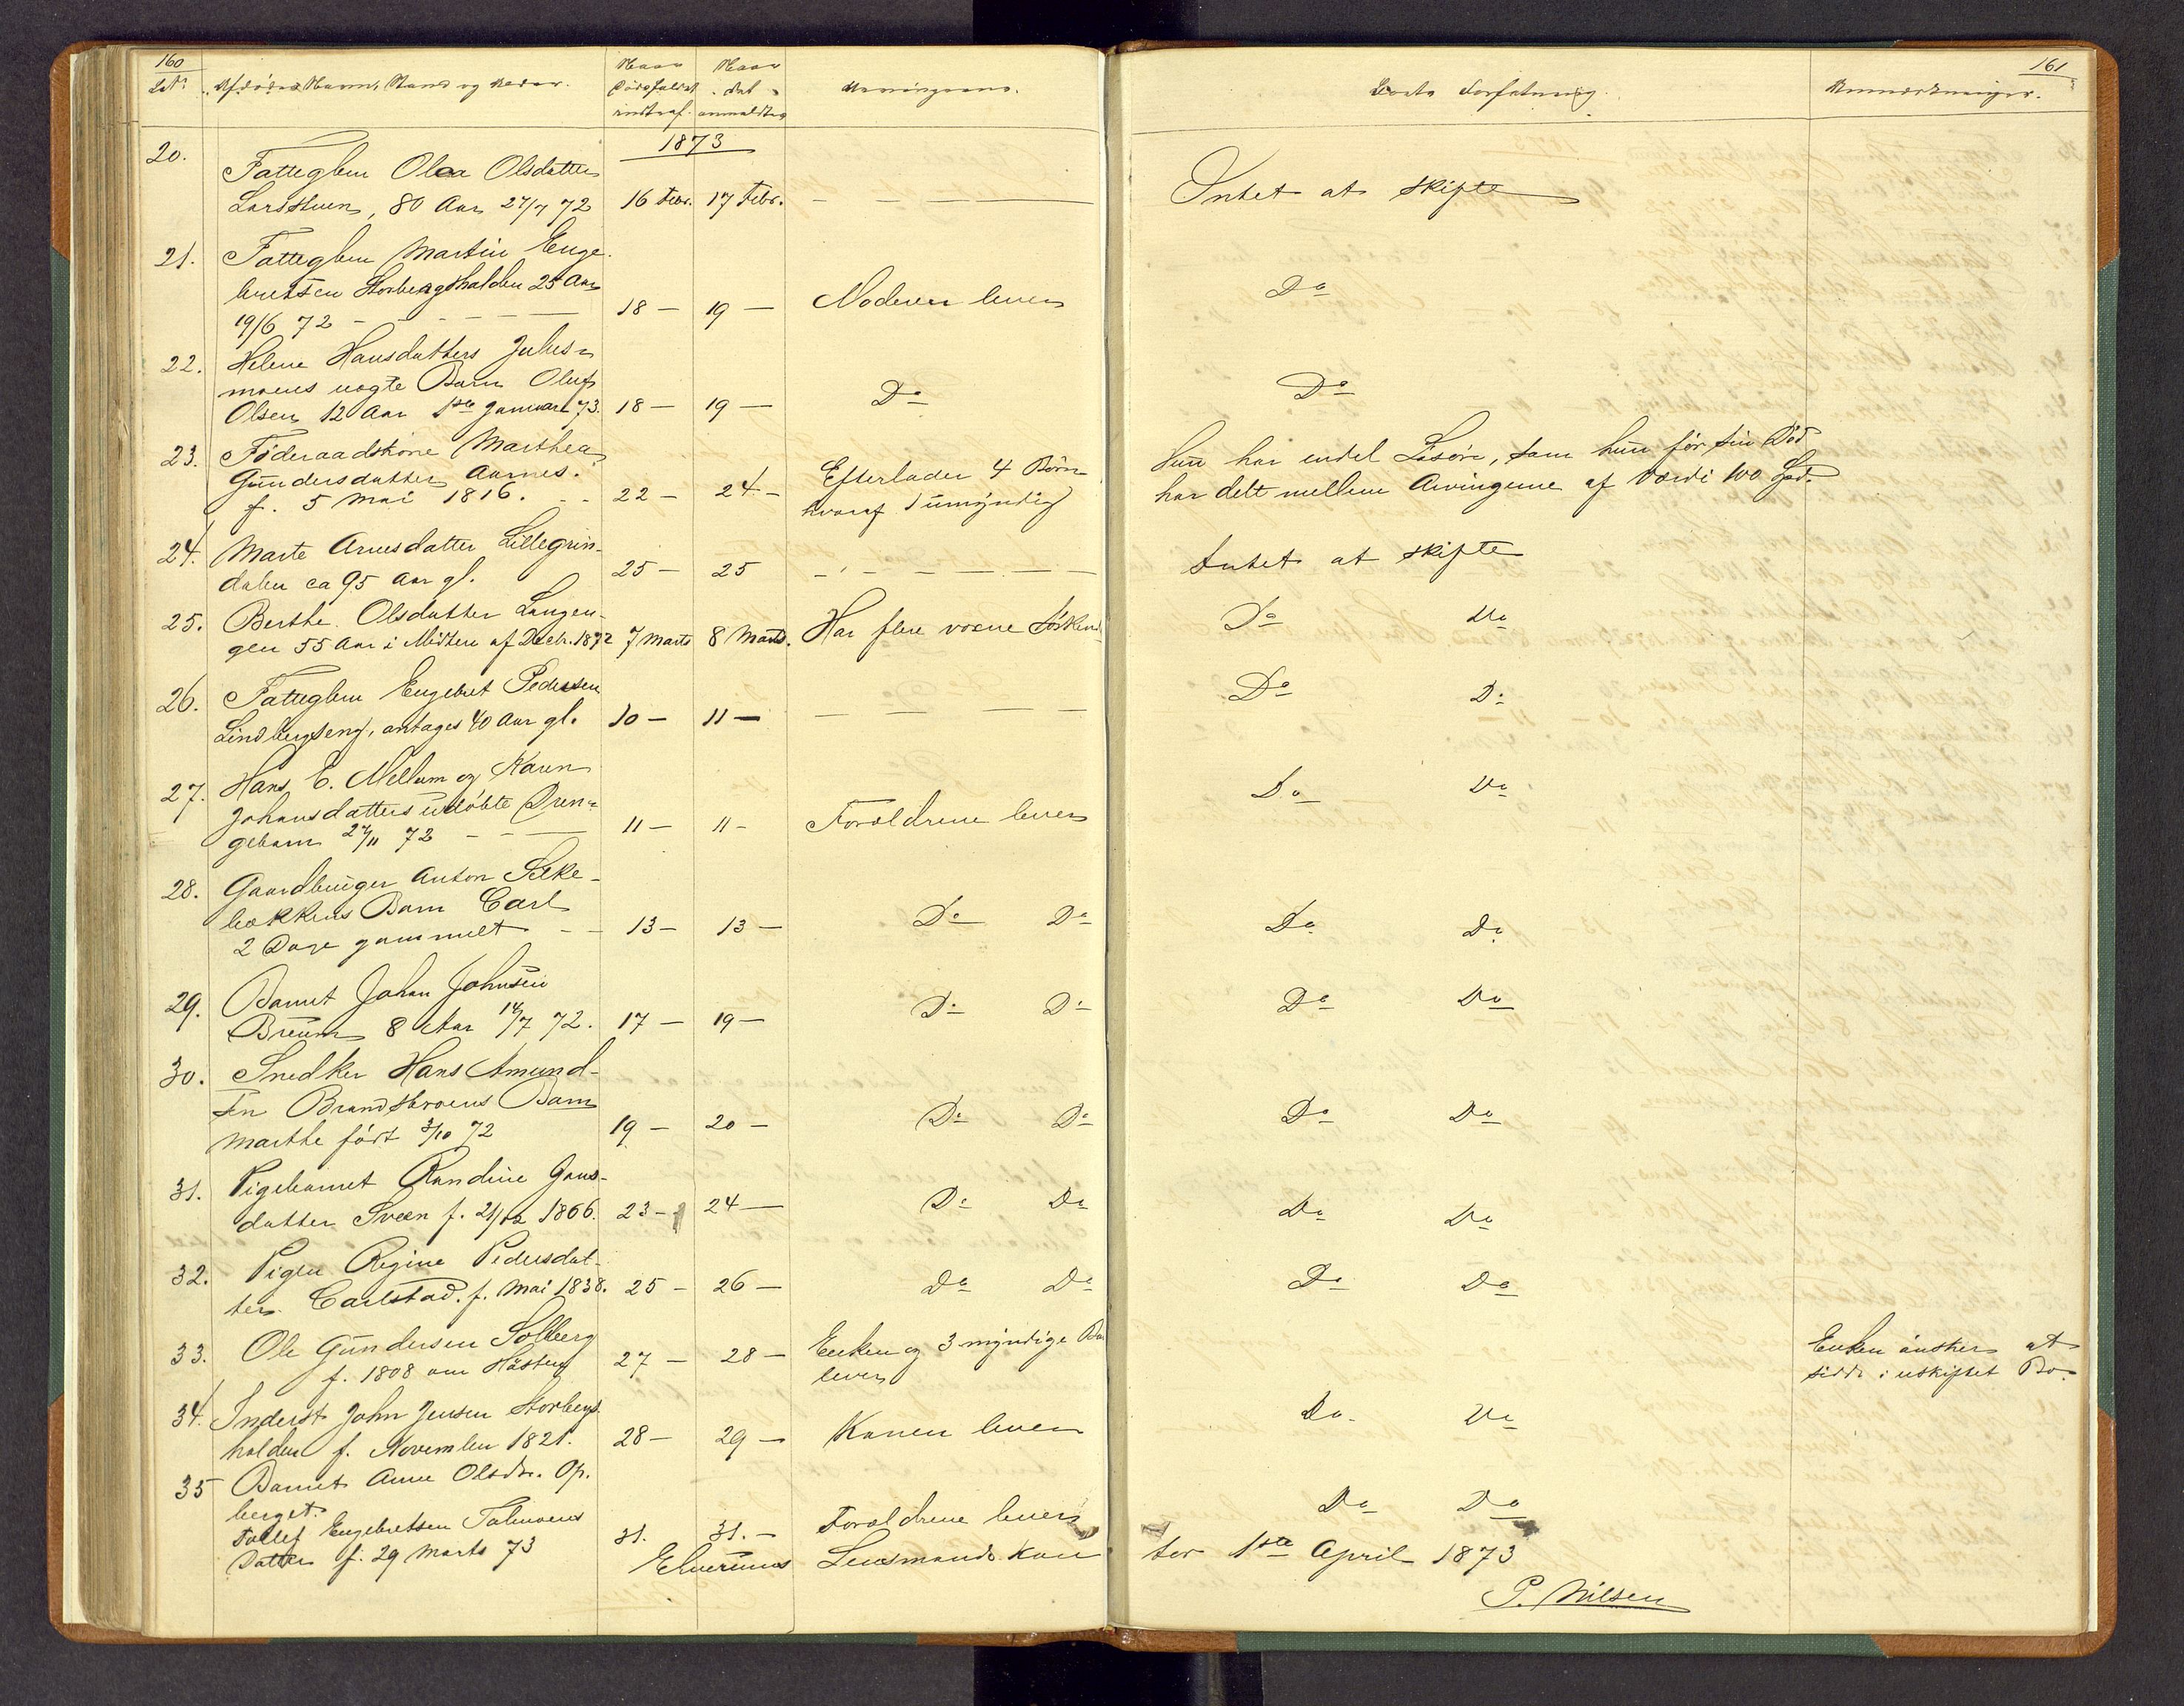 160
Lb. No. Afdødes Navn, Stand og Alder. Naar Dødsfaldet indtraf. Naar det anmeldtes Arvingerne.
1873
20. Fattiglem Olea Olsdatter
Larsstuen, 80 Aar 27/7 72 16 Febr. 17 Febr. — — — —
21. Fattiglem Martin Enge-
bretsen Storbergshalden 25 Aar
19/6 72 — — — — 18 — 19 — Moderen lever
22. Helene Hansdatters Julus-
moens uægte Barn Oluf
Olsen 12 Aar 1ste Januar 73. 18 — 19 — Do
23. Føderaadskone Marthea
Gundersdatter Aarnes.
f. 5 Mai 1816. - - 22 — 24 — Efterlader 4 Børn
hvoraf 1 umyndig
24. Marte Arnesdatter Lillegrin-
dalen ca 95 Aar gl. 25 — 25 — — — — — —
25. Berthe Olsdatter Langen-
gen 55 Aar i Midten af Decbr. 1872 7 Marts 8 Marts. Har flere voxne Søskende
26. Fattiglem Engebret Pedersen
Lindbergseng, antages 40 Aar gl. 10 — 11 — — — — —
27. Hans E. Mellum og Karen
Johansdatters udøbte Dren-
gebarn 27/11 72 — — — 11 — 11 - Forældrene lever
28. Gaardbruger Anton Silke-
bækkens Barn Carl
2 Dage gammelt - - 13 — 13 — Do Do
29. Barnet Johan Johnsen
Breum 8 Aar 14/7 72. 17 — 19 — Do Do
30. Snedker Hans Amund-
sen Brandstvoens Barn
Marthe født 3/10 72 19 — 20 — Do Do
31. Pigebarnet Randine Gaus-
datter Sveen f. 21/12 1866. 23 — 24 — Do Do
32. Pigen Regine Pedersdat-
ter Carlstad. f. Mai 1838. 25 — 26 — Do Do
33. Ole Gundersen Solberg
f. 1808 om Høsten 27 — 28 — Enken og 3 myndige Bø
lever
34. Inderst John Jensen Storbergs-
halden f. November 1821. 28 — 29 — Konen lever
35 Barnet Anne Olsdtr. Op-
berget.
Tollef Engebretsen Tølmoens
Datter f. 29 Marts 73 31. 31. — Forældrene lever
Elverums Lensmandskon
161
Boets Forfatning. Anmærkninger.
Intet at skifte
Do
Do
Hun har endel Løsøre, som hun før sin Død
har delt mellem Arvingerne af Værdi 100 Spd.
Intet at skifte
Do Do
Do Do
Do Do
Do Do
Do Do
Do Do
Do Do
Do Do
Enken ønsker at
sidde i uskiftet Bo.
Do. Do
Do Do
tor 1ste April 1873
P. Nilsen